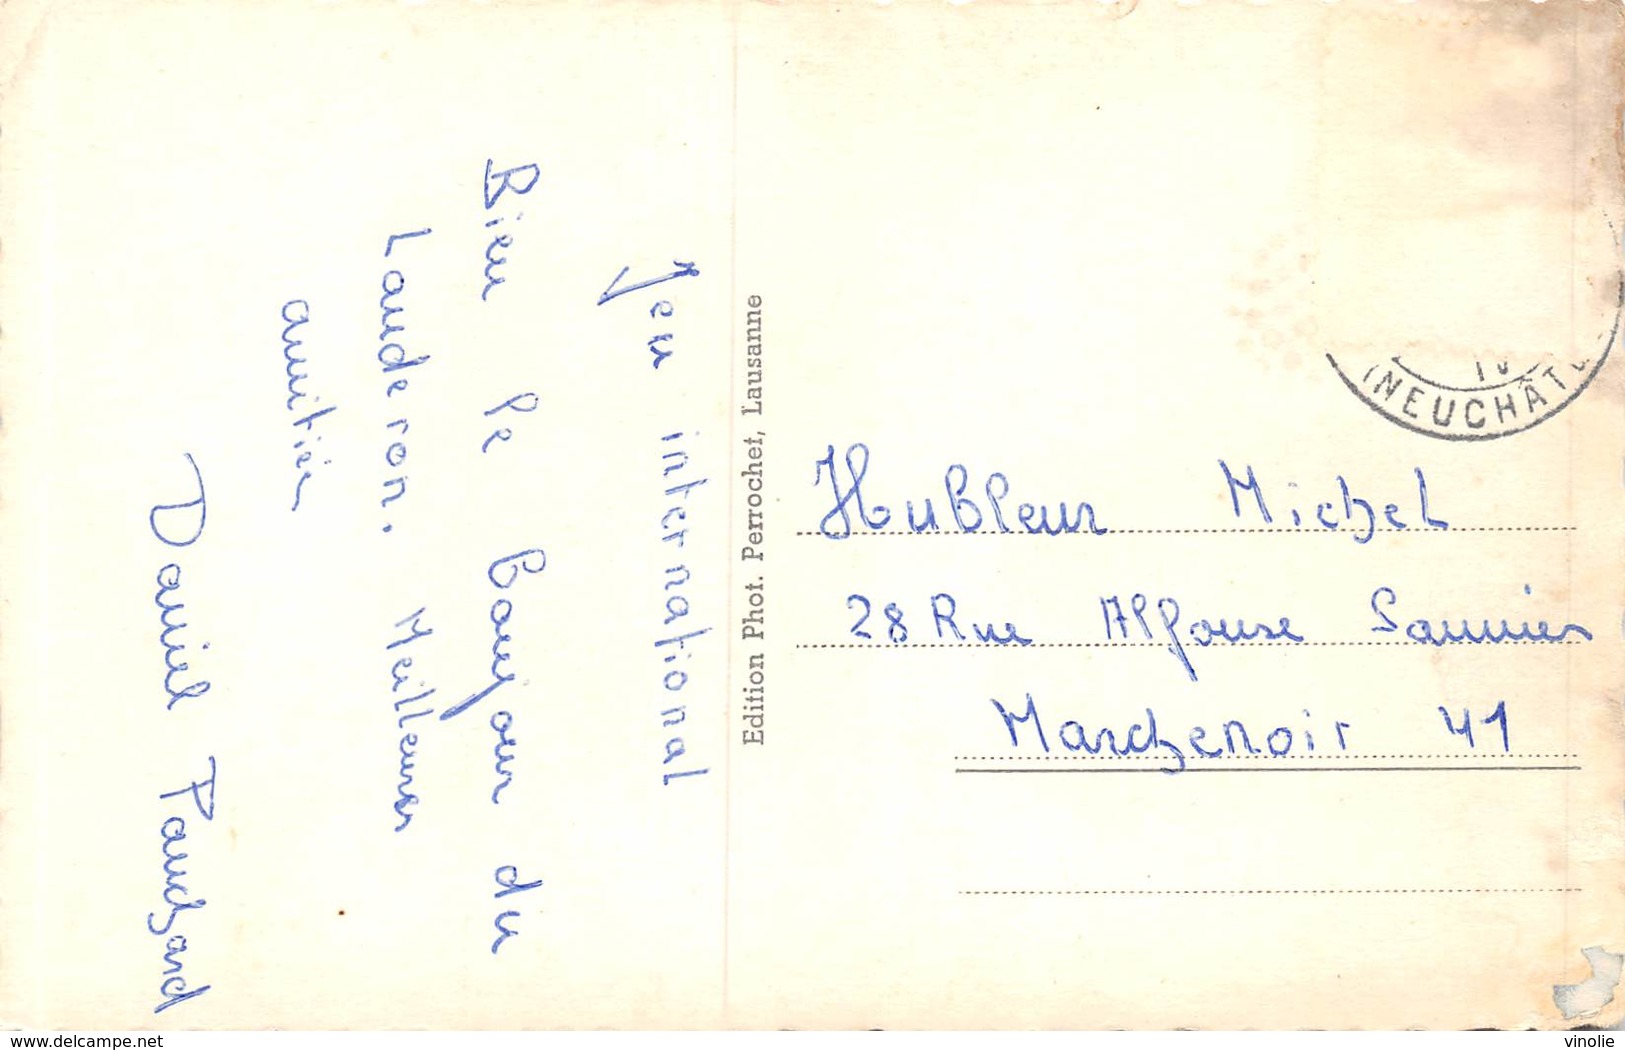 Jeu international
Bien le bonjour du
Landeron. Meilleures
amitiés
Daniel
Edition Phot. Perrochet, Lausanne
(NEUCHÂT
Hubleur Michel
28 Rue Alfonse Saunier
Marchenoir 41
www.delcampe.net
vinolie